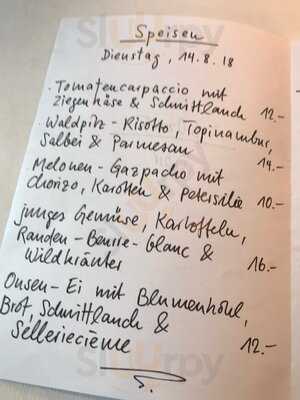 Speisen
Dienstag, 14.8.18
· Tomatencarpaccio mit
Ziegenkäse & Schnittlauch 12.-
· Waldpilz-Risotto, Topinambur,
Salbei & Parmesan 14.-
Melonen-Gazpacho mit
Chorizo, Karotten & Petersilie 10.-
junges Gemüse, Kartoffeln,
Randen-Beurre-blanc &
Wildkräuter 16.-
Onsen-Ei mit Blumenkohl,
Brot, Schnittlauch &
Selleriecrème 12.-